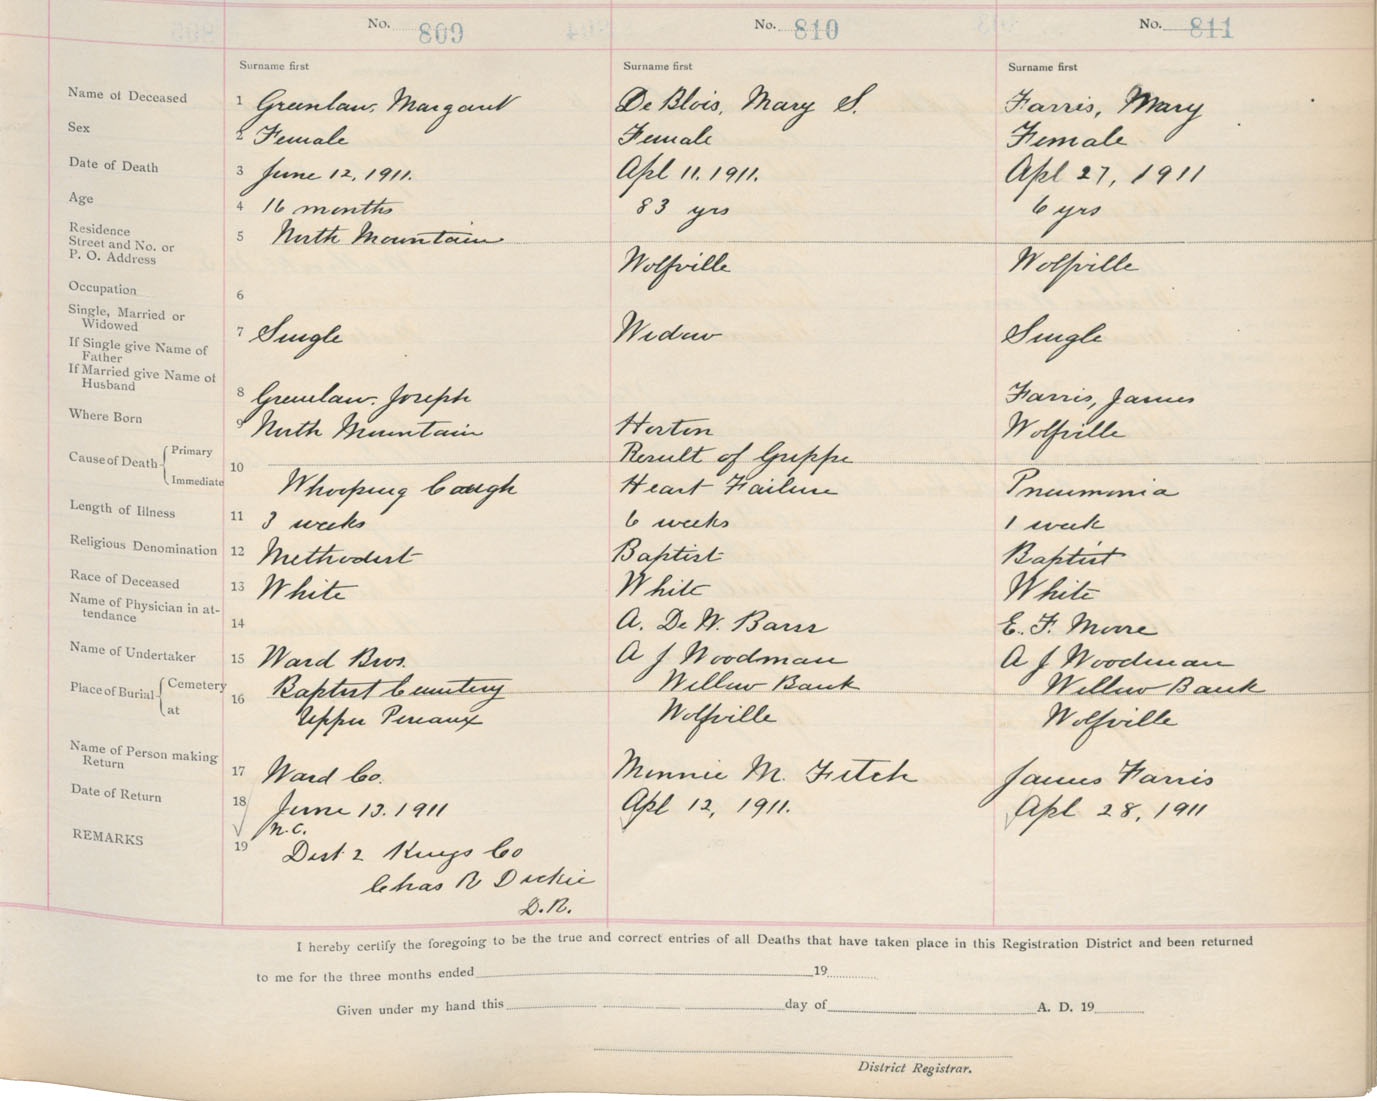 No. 809 No. 810 No. 811
Surname first Surname first Surname first
Name of Deceased 1 Greenlaw, Margaret DeBlois, Mary S. Farris, Mary
Sex 2 Female Female Female
Date of Death 3 June 12, 1911. Apl 11. 1911. Apl 27, 1911
Age 4 16 months 83 yrs 6 yrs
Residence
Street and No. or 5 North Mountain
P. O. Address Wolfville Wolfville
Occupation 6
Single, Married or
Widowed 7 Single Widow Single
If Single give Name of
Father
If Married give Name of
Husband 8 Greenlaw. Joseph Farris, James
Where Born 9 North Mountain Horton Wolfville
Cause of Death Primary 10 Result of Grippe
Immediate Whooping Cough Heart Failure Pneumonia
Length of Illness 11 3 weeks 6 weeks 1 week
Religious Denomination 12 Methodist Baptist Baptist
Race of Deceased 13 White White White
Name of Physician in at-
tendance 14 A. DeW. Barss E. F. Moore
Name of Undertaker 15 Ward Bros. A J Woodman A J Woodman
Place of Burial Cemetery 16 Baptist Cemetery Willow Bank Willow Bank
at Upper Pereaux Wolfville Wolfville
Name of Person making
Return 17 Ward Co. Minnie M. Fitch James Farris
Date of Return 18 June 13. 1911 Apl 12, 1911. Apl 28, 1911
N.C.
REMARKS 19 Dist 2 Kings Co
Chas R Dickie
D.R.
I hereby certify the foregoing to be the true and correct entries of all Deaths that have taken place in this Registration District and been returned
to me for the three months ended 19
Given under my hand this day of A. D. 19
District Registrar.